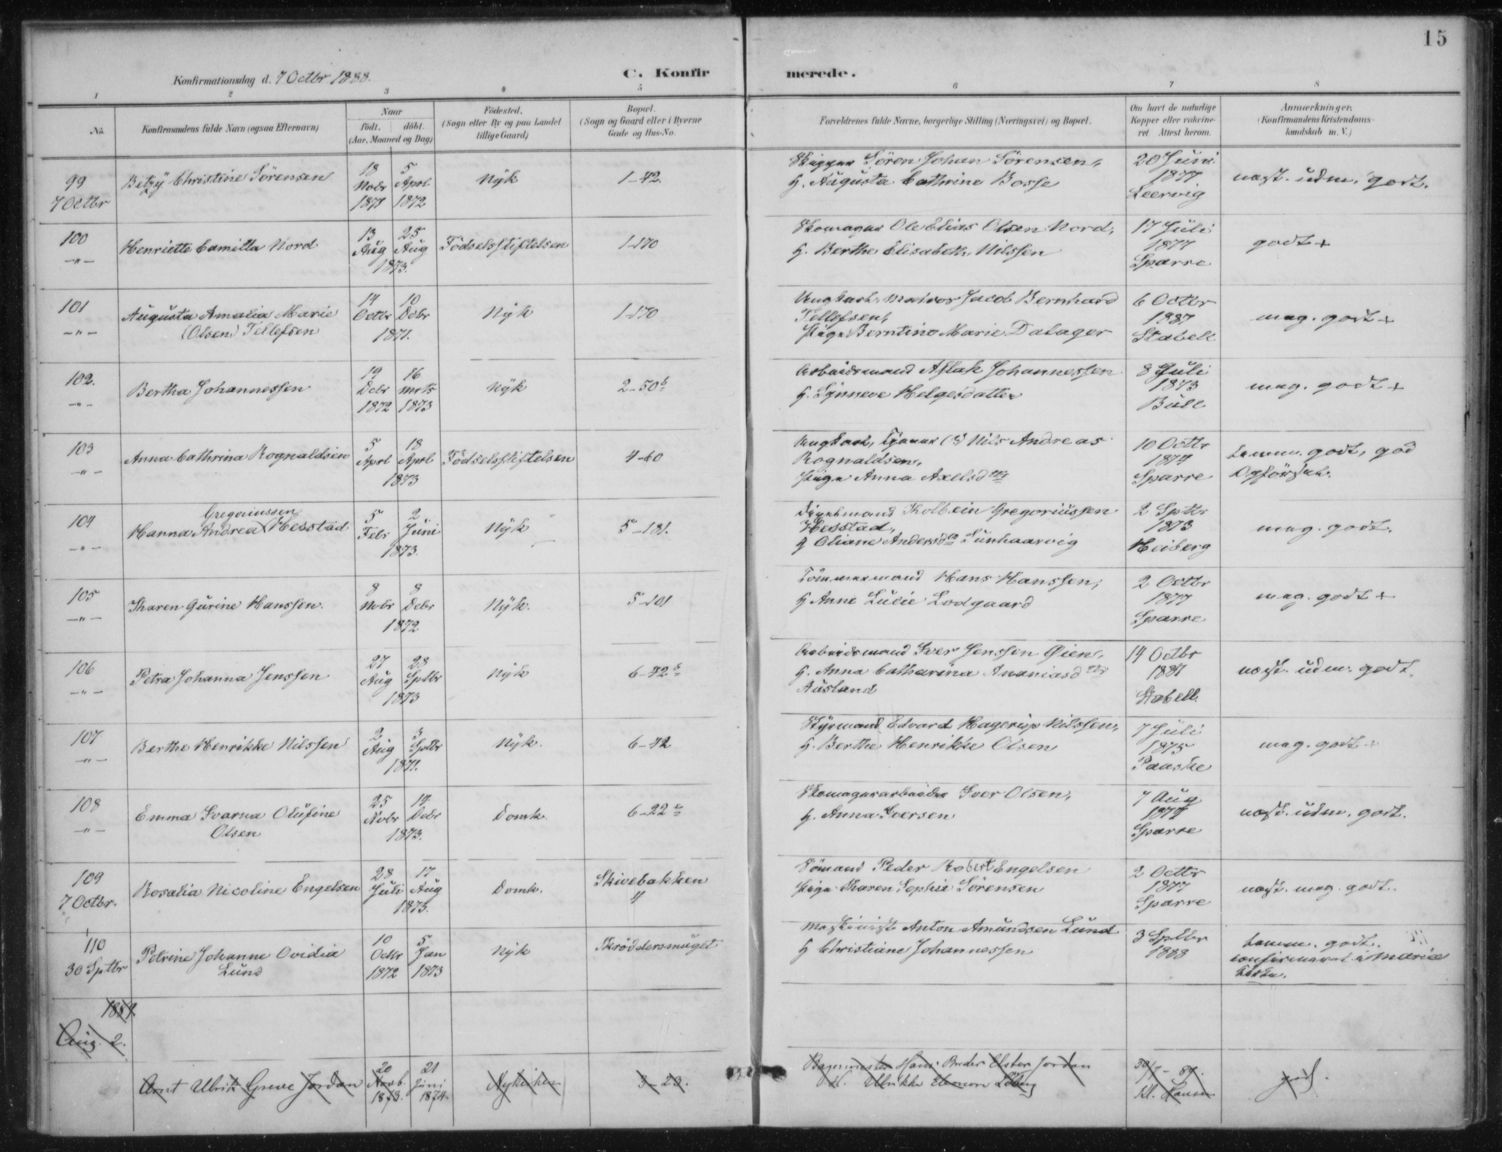 15
Konfirmationsdag d. 7 Octbr 1888.
C. Konfirmerede.
1 2 3 4 5 6 7 8
No.
Konfirmandens fulde Navn (ogsaa Efternavn)
Naar
født, døbt.
(Aar, Maaned og Dag)
Fødested.
(Sogn eller By og paa Landet
tillige Gaard)
Bopæl.
(Sogn og Gaard eller i Byerne
Gade og Hus-No.
Forældrenes fulde Navne, borgerlige Stilling (Næringsvei) og Bopæl.
Om havt de naturlige
Kopper eller vakcine-
ret Attest herom.
Anmærkninger.
(Konfirmandens Kristendoms-
kundskab m. V.)
99
7 Octbr
Betzÿ Christine Sørensen
18 Novbr 1871
5 April 1872
Nÿk
1-42.
Skipper Søren Johan Sørensen,
H. Augusta Cathrine Bosse
20 Juni
1877
Leervig
næst. udm. godt.
100
-"-
Henriette Camilla Nord
13 Aug
25 Aug
1873.
Fødselsstiftelsen
1-170
Skomager Ole Elias Olsen Nord,
H. Berthe Elisabeth Nilssen
17 Juli
1877
Sparre
godt +
101
-"-
Augusta Amalia Marie
(Olsen) Tellefsen
14 Octbr
10 Debr
1871.
Nÿk
1-170
Ungkarl, Matros Jacob Bernhard
Tellefsen,
Pige Berntine Marie Dalager
6 Octbr
1887
Stabell
meg. godt +
102.
-"-
Bertha Johannessen
19 Debr 1872
16 Marts 1873
Nÿk
2-50 b
Arbeidsmand Aslak Johannessen
H. Synneve Helgesdatter
8 Juli
1873
Bull
meg. godt +
103
-"-
Anna Cathrina Rognaldsen
5 Aprl
18 Aprl
1873
Fødselsstiftelsen
4-60
Ungkarl, Tjener Nils Andreas
Rognaldsen,
Pige Anna Axelsdtr
10 Octbr
1877
Sparre
temm. godt, god
Opførsel.
104
-"-
Gregoriussen
Hanna Andrea Hesstad
5 Febr
2 Juni
1873.
Nÿk
5-181.
Kolbein Gregoriussen
Hesstad,
H Oliane Andersdr Sunhaarvig
2 Sptbr
1873
Heiberg
meg. godt.
105
-"-
Tharen Gurine Hanssen.
8 Novbr
8 Debr
1872
Nÿk.
5-101
Tømmermand Hans Hanssen,
H Anne Lulie Lodgaard
2 Octbr
1877
Sparre
meg. godt +
106
-"-
Petra Johanna Jenssen
27 Aug
28 Sptbr
1873
Nÿk
6-42 b
Arbeidsmand Iver Jenssen Øien,
H. Anna Catharina Ananiasdtr
Ausland
14 Octbr
1881
Stabell
næst. udm. godt.
107
-"-
Berthe Henrikke Nilssen
2 Aug
3 Sptbr
Nÿk.
6-42
Styrmand Edvard Hagerup Nilssen,
H. Berthe Henrikke Olsen
7 Juli
1875
Paaske
meg. godt +
108
-"-
Emma Ivarna Olufine
Olsen
25 Novbr
14 Debr
1873.
Domk.
6-22
Skomagerarbeider Iver Olsen,
H. Anna Iversen
7 Aug
1877
Sparre
næst. udm. godt.
109
7 Octbr.
Rosalia Nicoline Engelsen
28 Juli
17 Aug
1873.
Domk.
Skivebakken
11
Sømand Peder Robert Engelsen
Pige Tharen Sophie Sørensen
2 Octbr
1877
Sparre
næst. meg. godt.
110
30 Sptbr
Petrine Johanne Ovidia
Lund
10 Octbr 1872
5 Jan 1873
Nÿk
Skrøddersmuget
Maskinist Anton Amundsen Lund
H Christiane Johannessen
3 Sptbr
1888
temm. godt.
confirmeret i Maria
Kirke.
1889.
Aug. 2.
Arnt Ulrik Greve Jordan
20
1873.
21 Juni 1874.
Nykirken
3-20.
Jordan
Ulrikke Eleonore
godt.